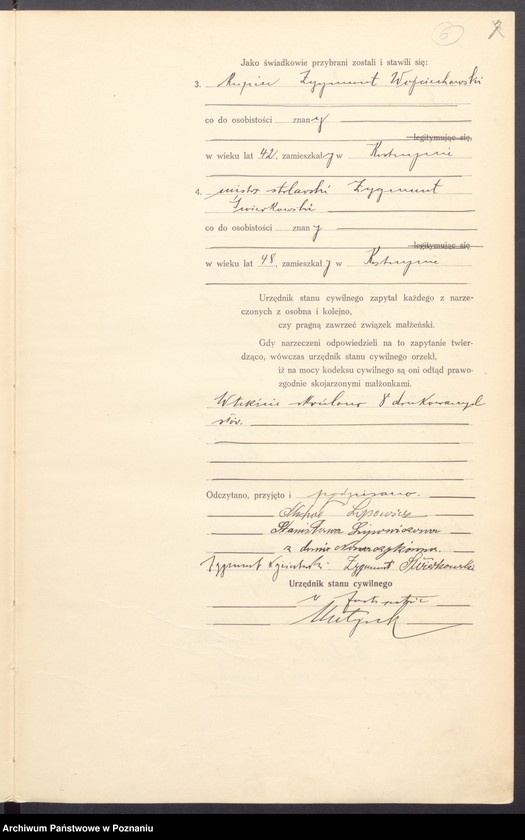 6 7
Jako świadkowie przybrani zostali i stawili się:
3. Kupiec Zygmunt Wojciechowski
co do osobistości znany
legitymując się,
w wieku lat 42, zamieszkały w Kostrzynie
4. mistrz stolarski Zygmunt
Świerkowski
co do osobistości znany
legitymując się
w wieku lat 48, zamieszkały w Kostrzynie
Urzędnik stanu cywilnego zapytał każdego z narze-
czonych z osobna i kolejno,
czy pragną zawrzeć związek małżeński.
Gdy narzeczeni odpowiedzieli na to zapytanie twier-
dząco, wówczas urzędnik stanu cywilnego orzekł,
iż na mocy kodeksu cywilnego są oni odtąd prawo-
zgodnie skojarzonymi małżonkami.
W tekście skréślono 8 drukowanych
słów.
Odczytano, przyjęto i podpisano.
Stanisława
z domu
Zygmunt Zygmunt Świerkowski
Urzędnik stanu cywilnego
w zastępstwie
Archiwum Państwowe w Poznaniu